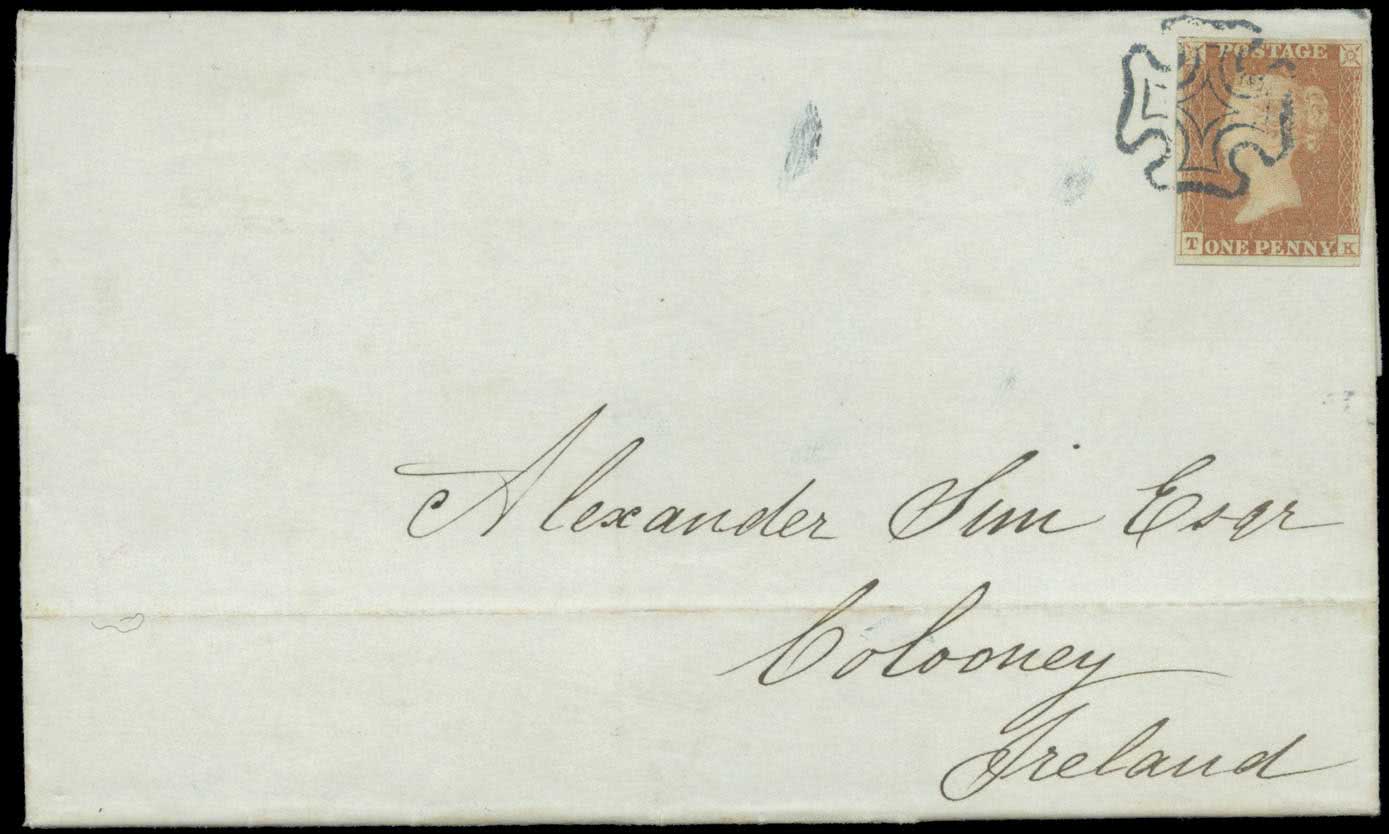 POSTAGE
T ONE PENNY. K
Alexander Sim Esqr
Colooney
Ireland